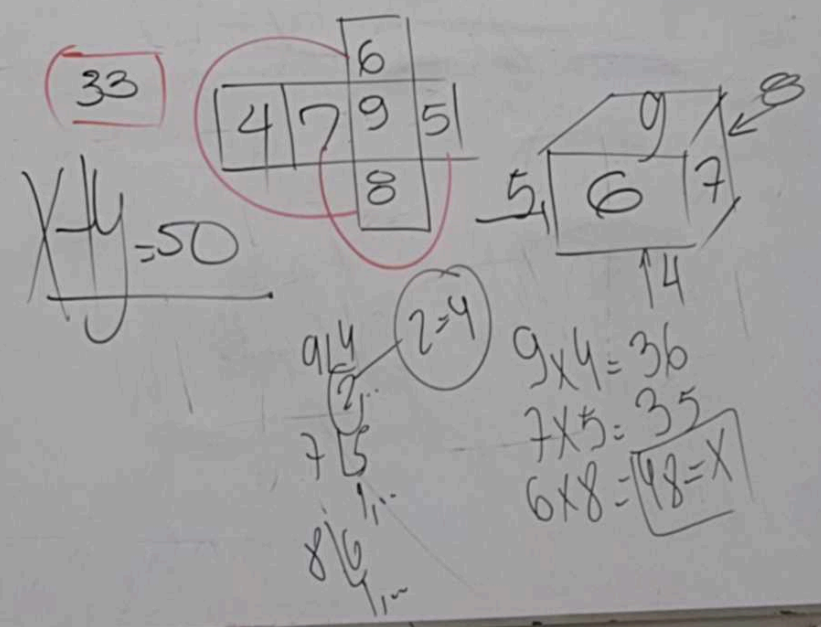 33
6
4 7 9 5
8
X+y=50
9 8
5 6 7
14
9 4
2,..
2=4
7 5
1,..
8 6
1,..
9x4=36
7x5=35
6x8=48=X